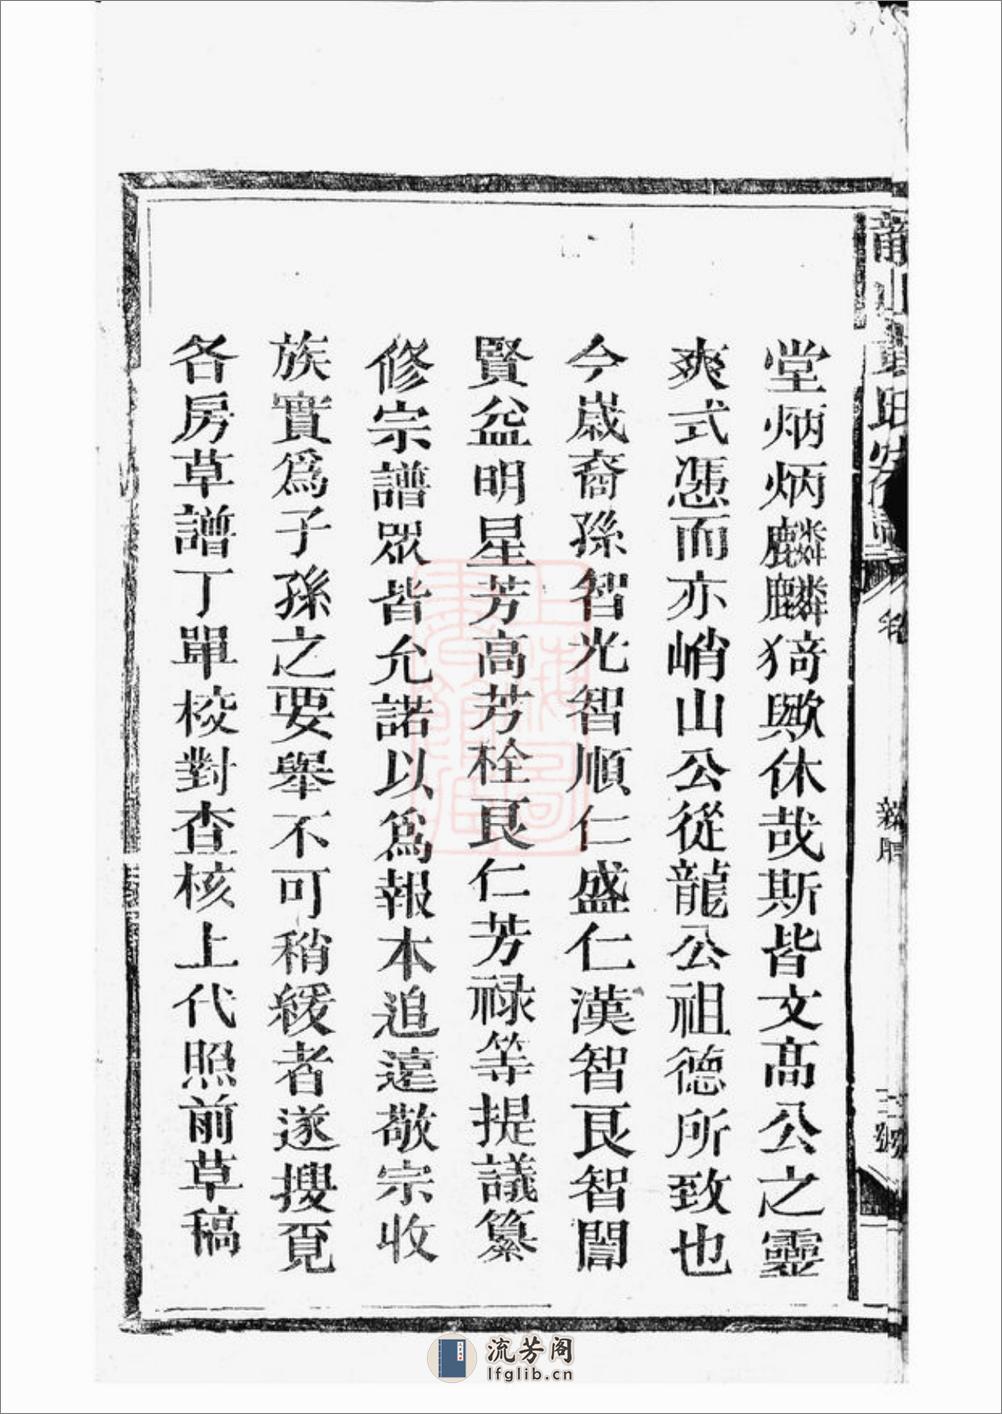 堂炳炳麟麟猗歟休哉斯皆文高公之靈
爽式憑而亦峭山公從龍公祖德所致也
今歲裔孫智光智順仁盛仁漢智良智誾
賢益明星芳高芳栓良仁芳祿等提議纂
修宗譜眾皆允諾以爲報本追遠敬宗收
族實爲子孫之要舉不可稍緩者遂搜覓
各房草譜丁單校對查核上代照前草稿
上海圖書館藏
流芳阁
lfglib.cn